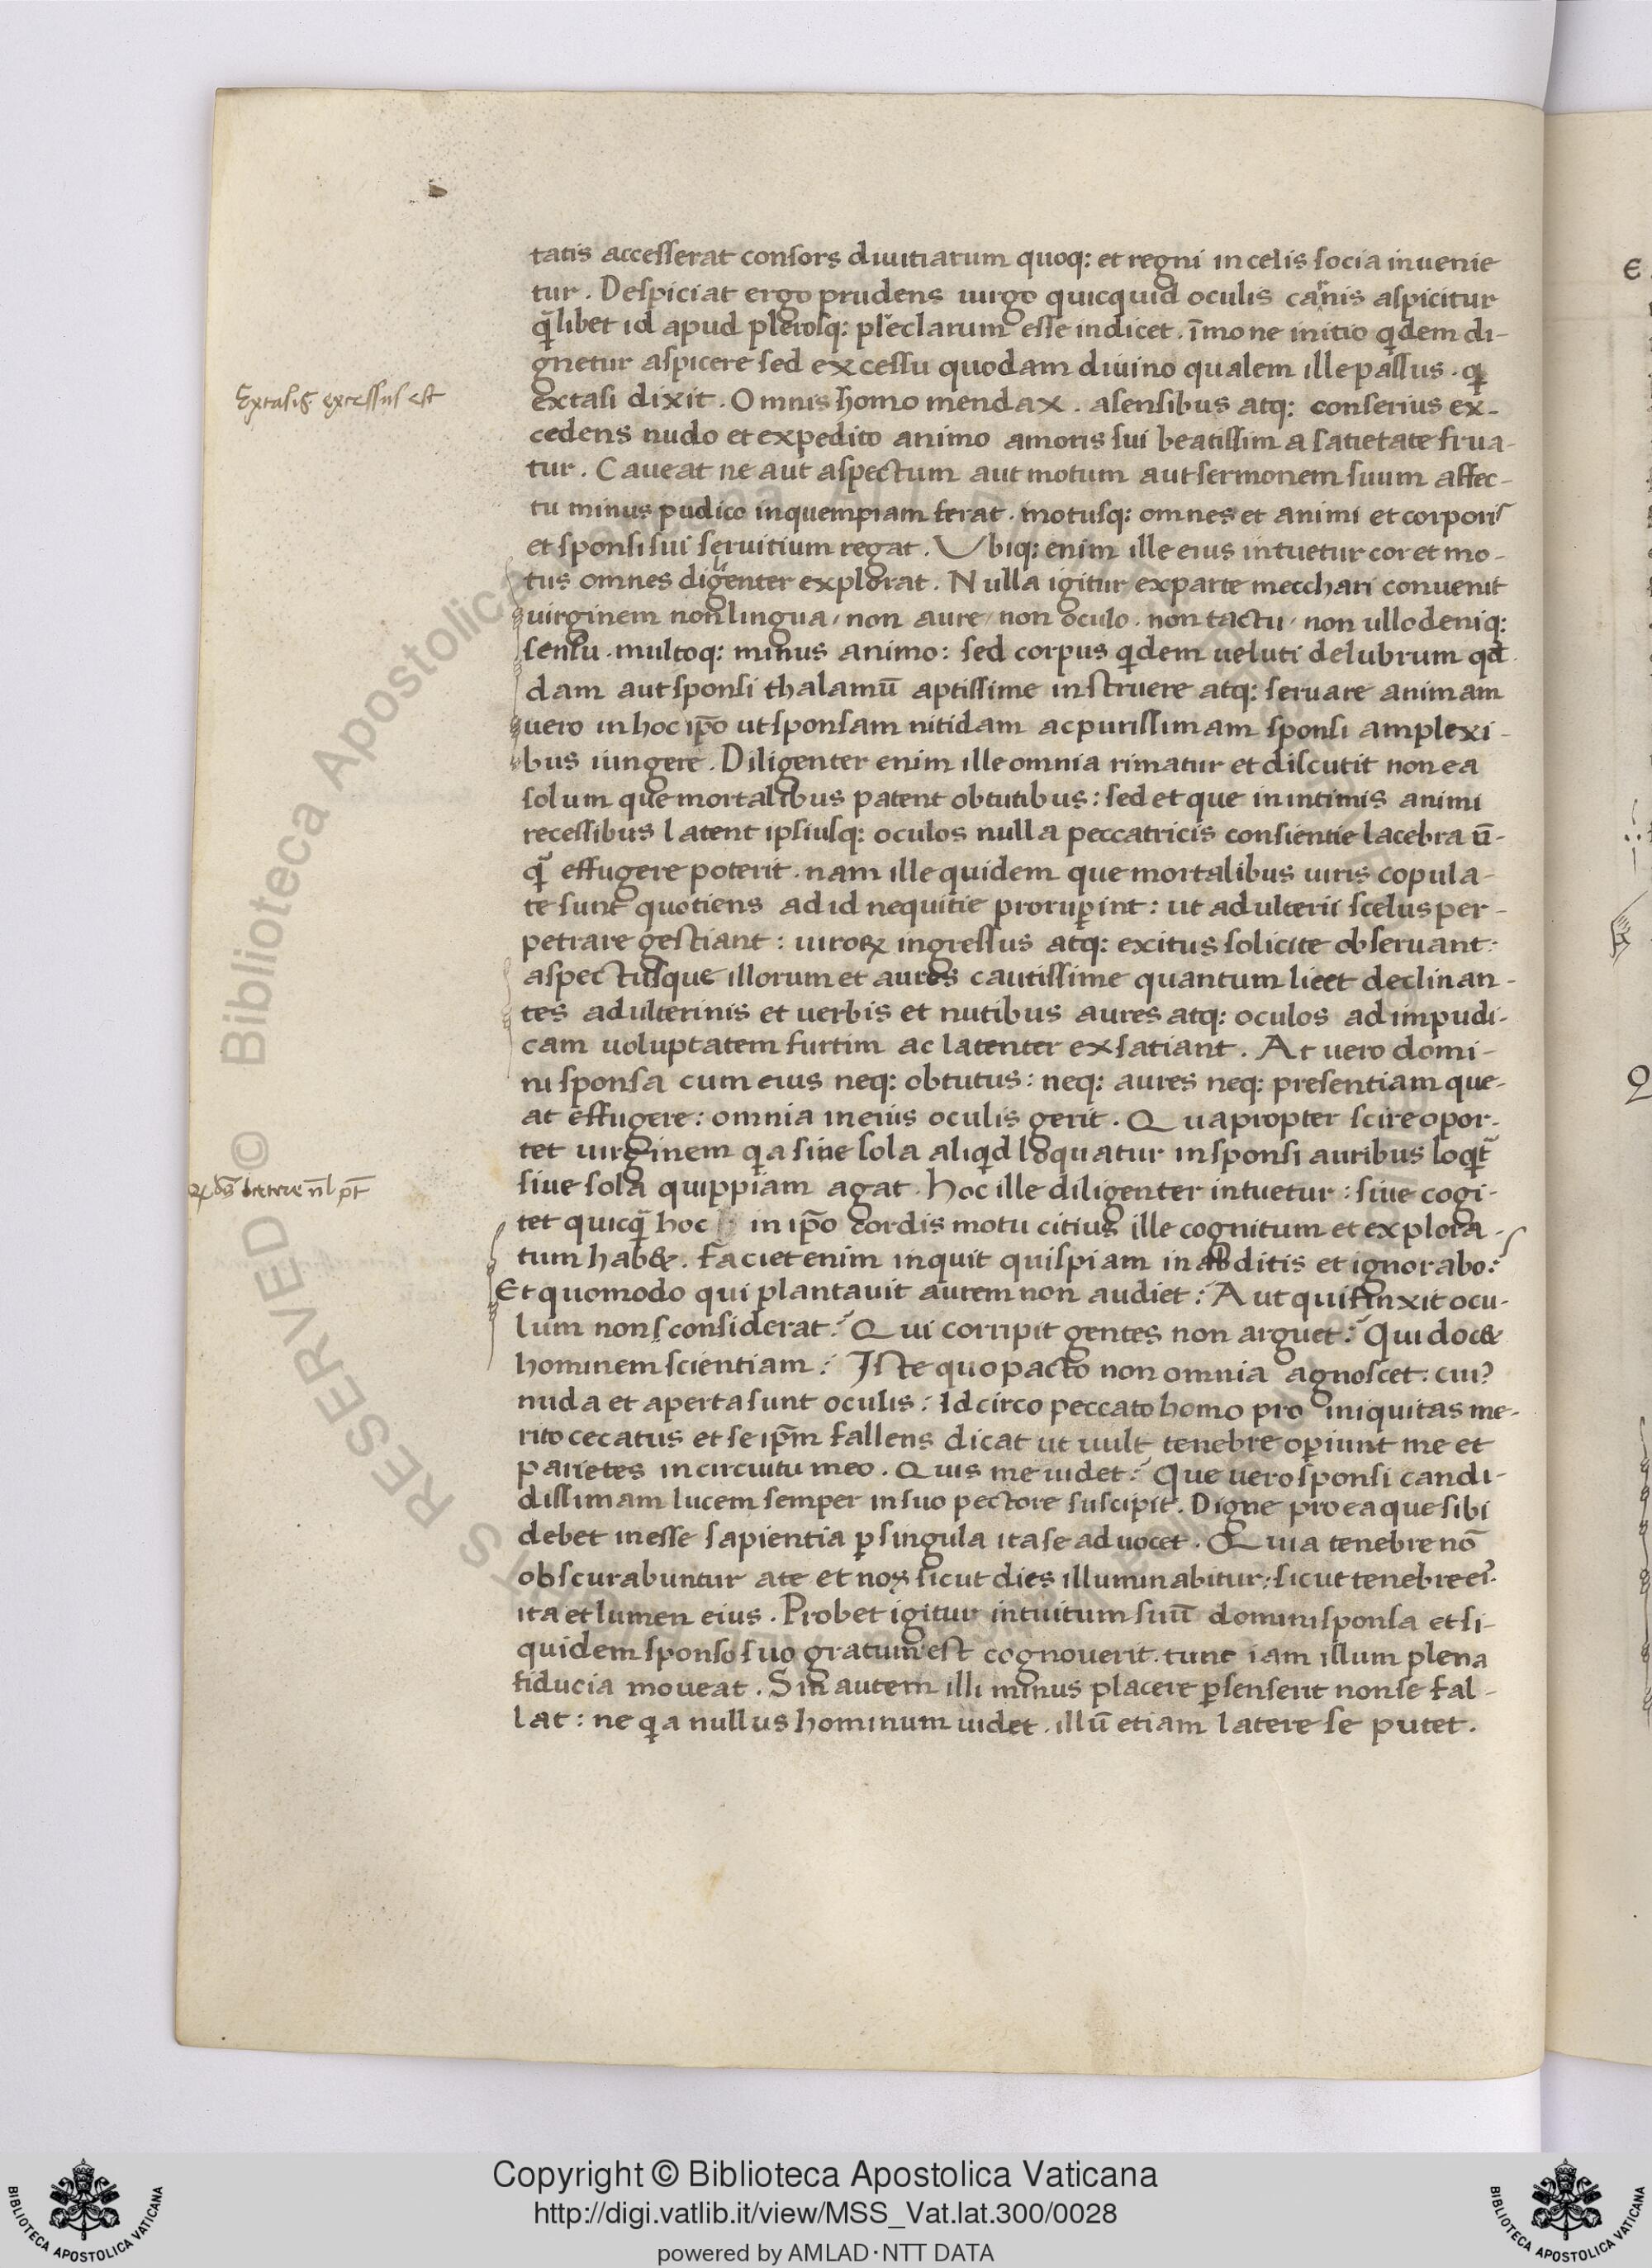 tatis accesserat consors diuitiarum quoq: et regni in celis socia inuenie
tur . Despiciat ergo prudens uirgo quicquid oculis carnis aspicitur
q̃libet id apud plerosq: p̃clarum esse indicet . īmo ne initio q̇dem di-
gnetur aspicere sed excessu quodam diuino qualem ille passus . q̇
Extasis excessus est
extasi dixit . Omnis homo mendax . a sensibus atq: conserius ex-
cedens nudo et expedito animo amoris sui beatissima satietate frua-
tur . Caueat ne aut aspectum aut motum aut sermonem suum affec-
tu minus pudico in quempiam ferat . motusq: omnes et animi et corporis
et sponsi sui seruitium regat . Ubiq: enim ille eius intuetur cor et mo-
tus omnes diligenter explorat . Nulla igitur ex parte mecchari conuenit
uirginem non lingua / non aure / non oculo . non tactu / non ullo deniq:
sensu . multoq: minus animo : sed corpus q̇dem ueluti delubrum qd̄
dam aut sponsi thalamū aptissime instruere atq: seruare animam
uero in hoc ip̄o ut sponsam nitidam ac purissimam sponsi amplexi-
bus iungere . Diligenter enim ille omnia rimatur et discutit non ea
solum que mortalibus patent obtutibus : sed et que in intimis animi
recessibus latent ipsiusq: oculos nulla peccatricis consientie lacebra ū-
q̃ effugere poterit . nam ille quidem que mortalibus uiris copula-
te sunt quotiens ad id nequitie prorup̄int : ut adulterii scelus per-
petrare gestiant : uiroꝝ ingressus atq: exitus solicite obseruant :
aspectusque illorum et aures cautissime quantum licet declinan-
tes adulterinis et uerbis et nutibus aures atq: oculos ad impudi-
cam uoluptatem furtim ac latenter exsatiant . At uero domi-
ni sponsa cum eius neq: obtutus : neq: aures neq: presentiam que-
at effugere : omnia in eius oculis gerit . Quapropter scire opor-
tet uirginem q̇a siue sola aliq̇d loquatur in sponsi auribus loq̇t̃
siue sola quippiam agat . hoc ille diligenter intuetur : siue cogi-
tet quicq̃ hoc in ip̄o cordis motu citius ille cognitum et explora-
tum hab& . Faciet enim inquit quispiam in abditis et ignorabo :
Et quomodo qui plantauit aurem non audiet : Aut qui finxit ocu-
lum non considerat : Qui corripit gentes non arguet : Qui doc&
hominem scientiam : Iste quo pacto non omnia agnoscet : cui?
nuda et aperta sunt oculis : Idcirco peccato homo pro iniquitas me-
rito cecatus et se ip̄m fallens dicat ut uult tenebre op̄iunt me et
parietes in circuitu meo . Quis me uidet : Que uero sponsi candi-
dissimam lucem semper in suo pectore suscipit . Digne pro ea que sibi
debet inesse sapientia ꝑ singula ita se aduocet . Quia tenebre nō
obscurabuntur a te et nox sicut dies illuminabitur : sicut tenebre eiꝰ
ita et lumen eius . Probet igitur intuitum suū domini sponsa et si-
quidem sponso suo gratum est cognouerit . tunc iam illum plena
fiducia moueat . Sin autem illi minus placere ꝑsenserit non se fal-
lat : ne q̇a nullus hominum uidet . illū etiam latere se putet .
Copyright © Biblioteca Apostolica Vaticana
http://digi.vatlib.it/view/MSS_Vat.lat.300/0028
powered by AMLAD·NTT DATA
BIBLIOTECA APOSTOLICA VATICANA
BIBLIOTECA APOSTOLICA VATICANA